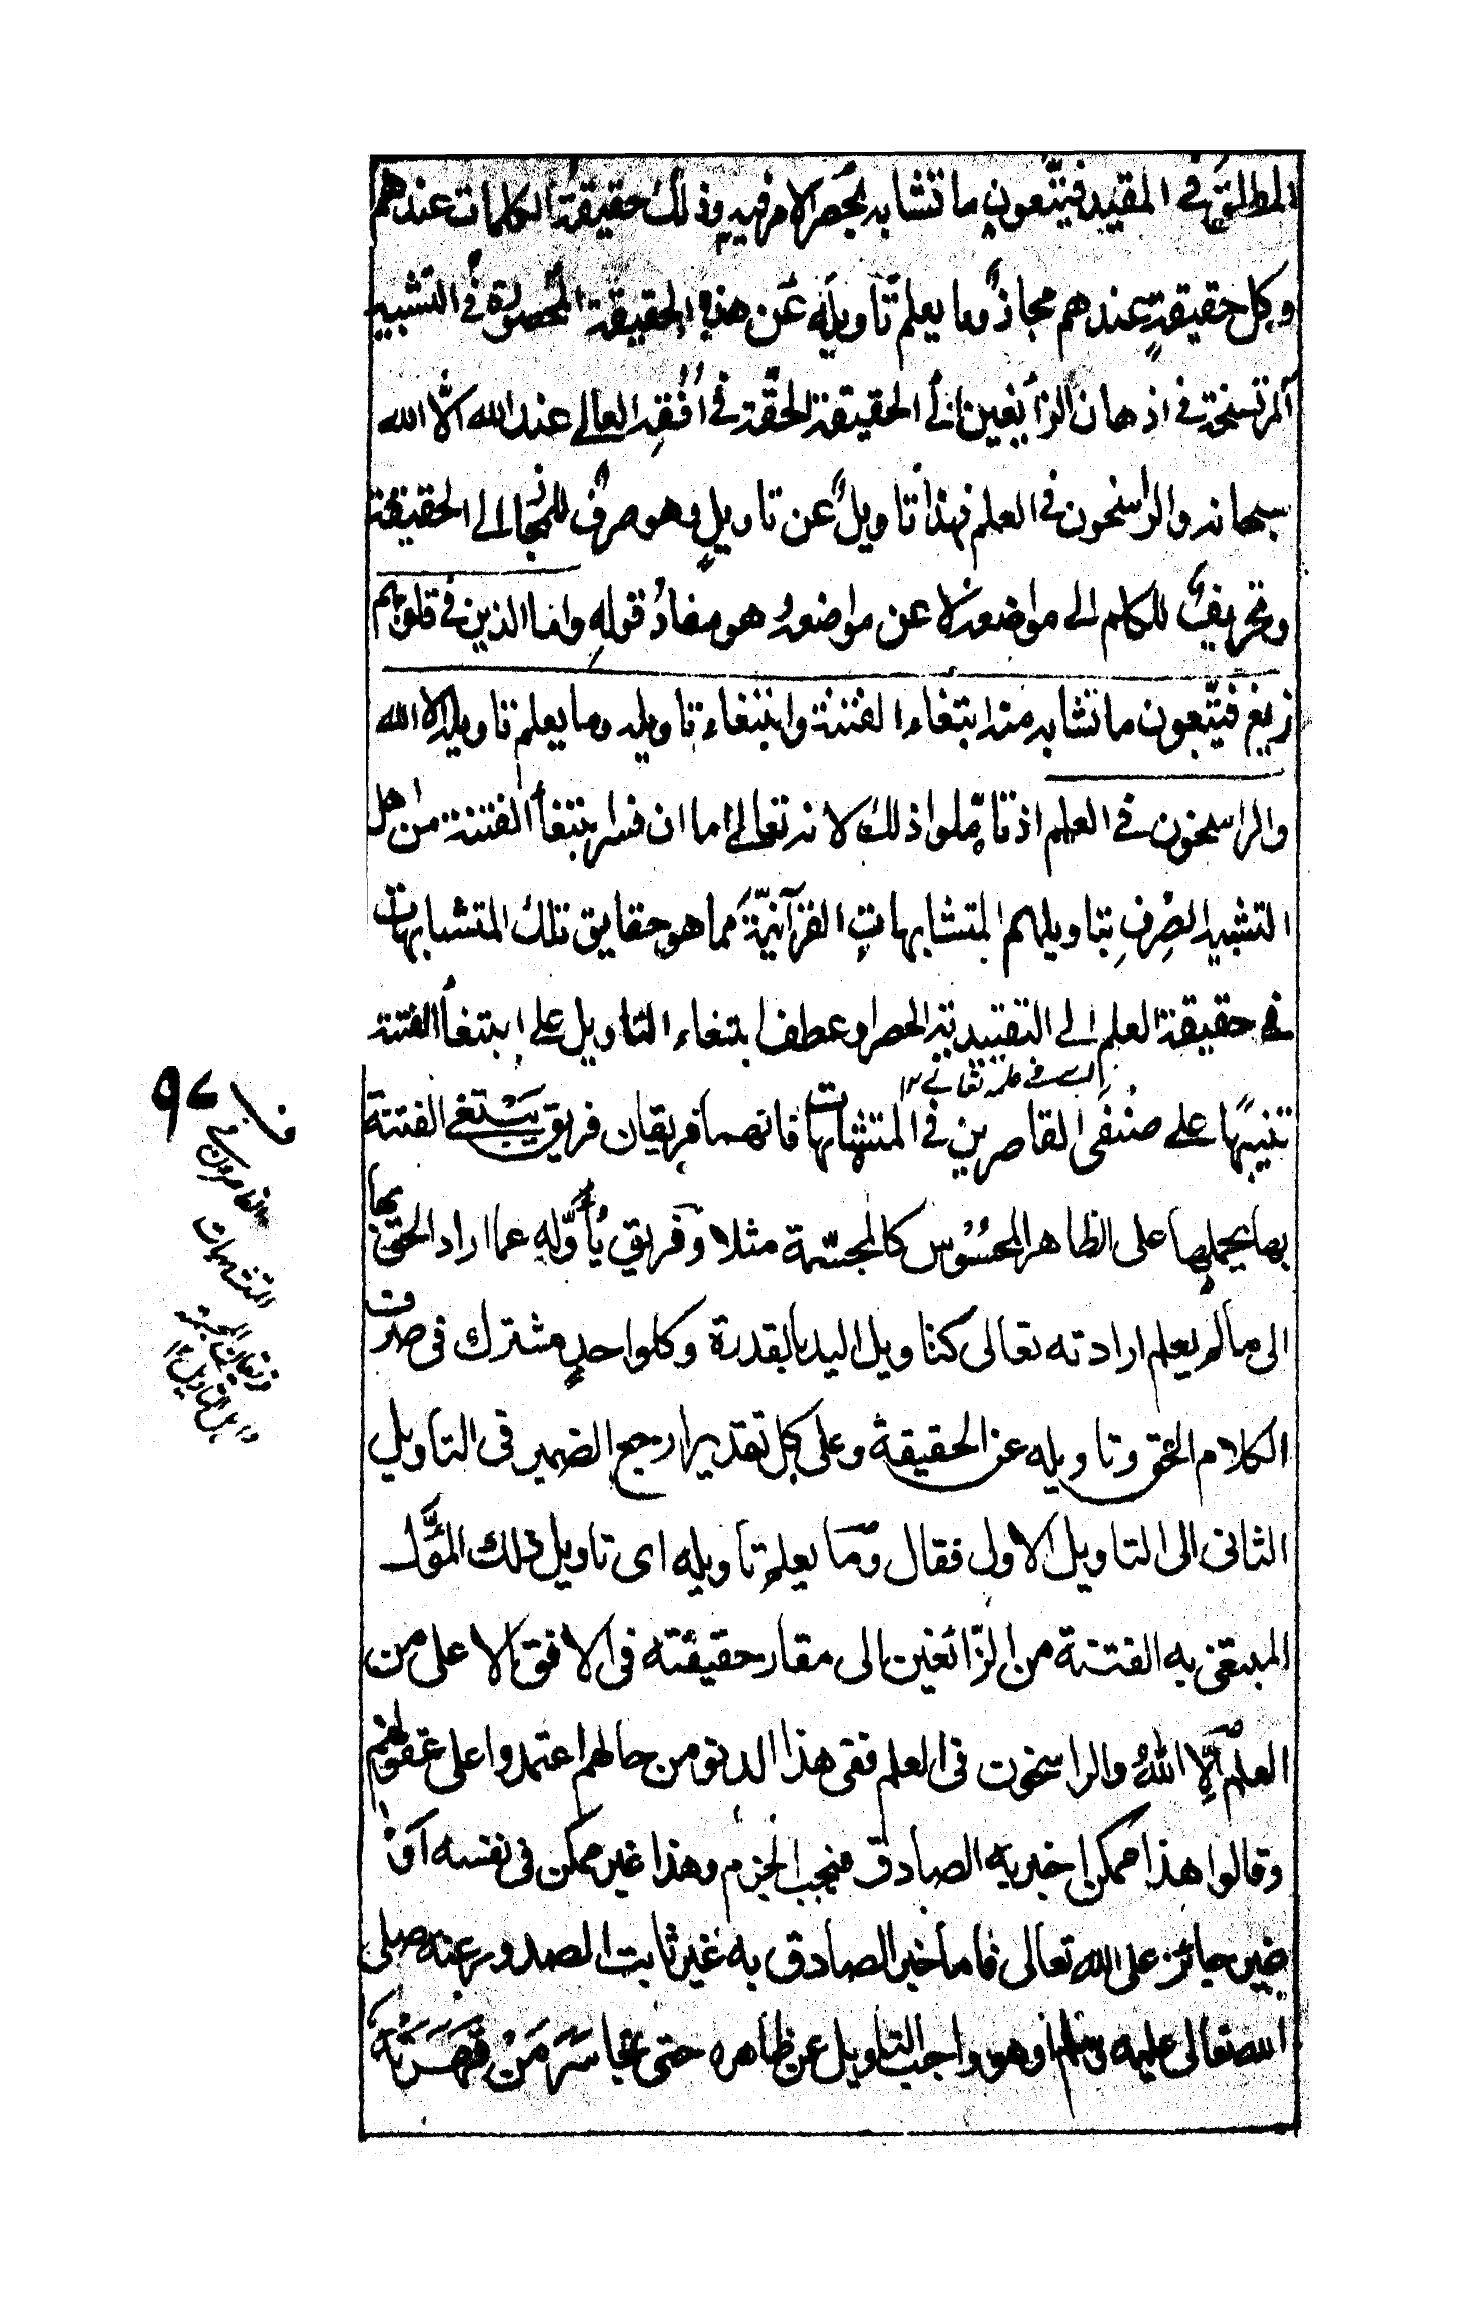 المطلق في المقيد فيتّبعون ما تشابه بحصر الامر فيه وذلك حقيقة الكلمات عندهم
وكل حقيقةٍ عندهم مجازٌ وما يعلم تاويله عَن هذه الحقيقة المحصورة في التشبيه
المرتسخة في اذهان الزايغين الى الحقيقة الحقّة في اُفُقِه العالي عند الله الّا الله
سبحانه والراسخون في العلم فهذا تاويلٌ عن تاويلٍ وهو صرفٌ للمجاز الى الحقيقة
وتحريفٌ للكلم الى مواضعه لا عن مواضعه هو مفادُ قوله واما الذين في قلوبهم
زيغ فيتّبعون ما تشابه منه ابتغاء الفتنة وابتغاء تاويله وما يعلم تاويله الا الله
والراسخون في العلم اذ تامّلوا ذلك لانه تعالى اما ان فسر ابتغاء الفتنة من اهل
التشبيه الصِرفِ بتاويلهم المتشابهاتِ القرآنيّة مما هو حقايق تلك المتشابهات
في حقيقة العلم الى التقييد به الحصر او عطف ابتغاء التاويل على ابتغاء الفتنة
تنبيهًا على صنفَى القاصرين في المتشابهات فانهما فريقان فريق يبتغي الفتنة
بها بحملها على الظاهر المحسُوس كالمجسّمة مثلا وفريق يُأَوّله عما اراد الحق بها
الى ما لم يعلم ارادته تعالى كتاويل اليد بالقدرة وكل واحدٍ مشترك في صرف
الكلام الحق وتاويله عن الحقيقة وعلى كل تقدير ارجع الضمير في التاويل
الثاني الى التاويل الاول فقال وَمَا يعلم تاويله اى تاويل ذلك المُؤَّل
المبتغى به الفتنة من الزّائغين الى مقار حقيقته في الافق الاعلى من
العلم اِلّا اللهُ والراسخون في العلم ففى هذا الدنو من حالهم اعتمدوا على عقولهم
وقالوا هذا ممكن اخبر به الصادق فيجب الجزم وهذا غير ممكن في نفسه اَو
غير جائز على الله تعالى فاما خبر الصادق به غير ثابت الصدور عنه صلى
الله تعالى عليه وسلم او هو واجب التاويل عن ظاهره حتى تجاسَرَ مَنْ قَهَرَتْه
ف ٩٧
القاصرون في
المتشابهات
فرقتان المجسمة
واهل التاويل ١٢